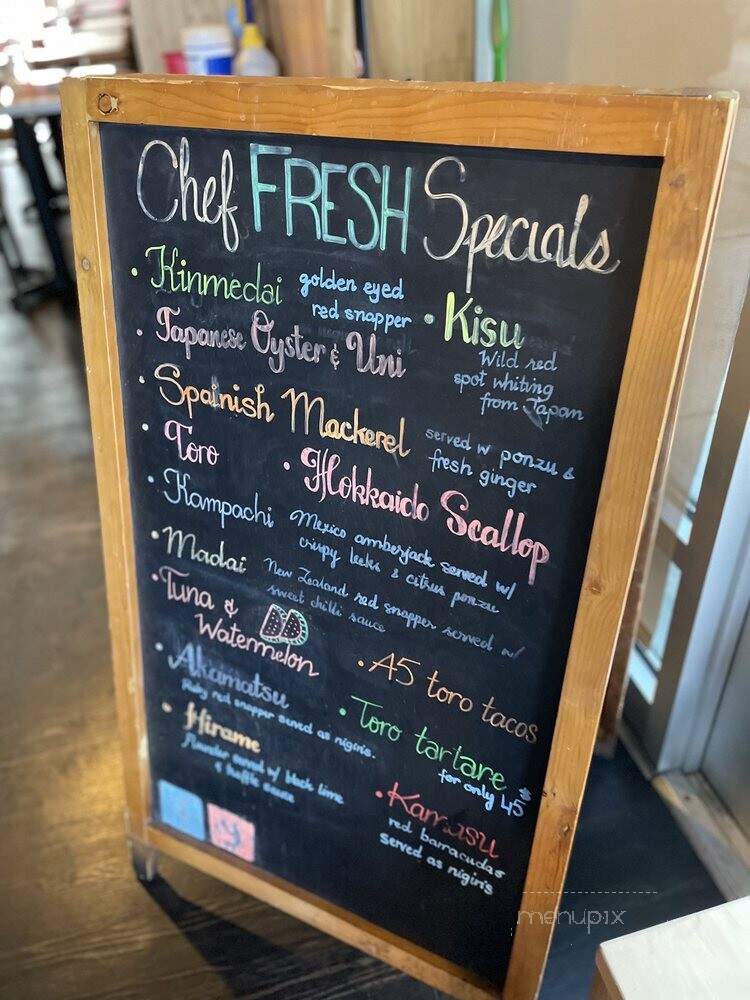 Chef FRESH Specials
• Kinmedai golden eyed
red snapper
• Kisu
Wild red
spot whiting
from Japan
• Japanese Oyster & Uni
• Spainish Mackerel served w ponzu &
fresh ginger
• Toro
• Hokkaido Scallop
• Kampachi Mexico amberjack served w/
crispy leeks & citrus ponzu
• Madai New Zealand red snapper served w/
sweet chilli sauce
• Tuna &
Watermelon
• A5 toro tacos
• Akamatsu
Ruby red snapper served as nigiri's.
• Toro tartare
for only 45$
• Hirame
flounder served w/ black lime
& truffle sauce
• Kamasu
red barracudas
served as nigiri's
menupix